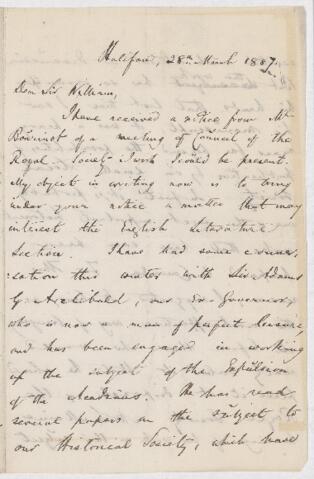 Halifax, 28th March 1887.
Dear Sir William,
I have received a notice from Mr
Bourinot of a meeting of Council of the
Royal Society. I wish I could be present.
My object in writing now is to bring
under your notice a matter that may
interest the English Literature
Section. I have had some commun-
-ication this winter with Sir Adams
G. Archibald, our Ex-Governor,
who is now a man of perfect leisure
and has been engaged in working
up the subject of the Expulsion
of the Acadians. He has read
several papers on the subject to
our Historical Society, which have